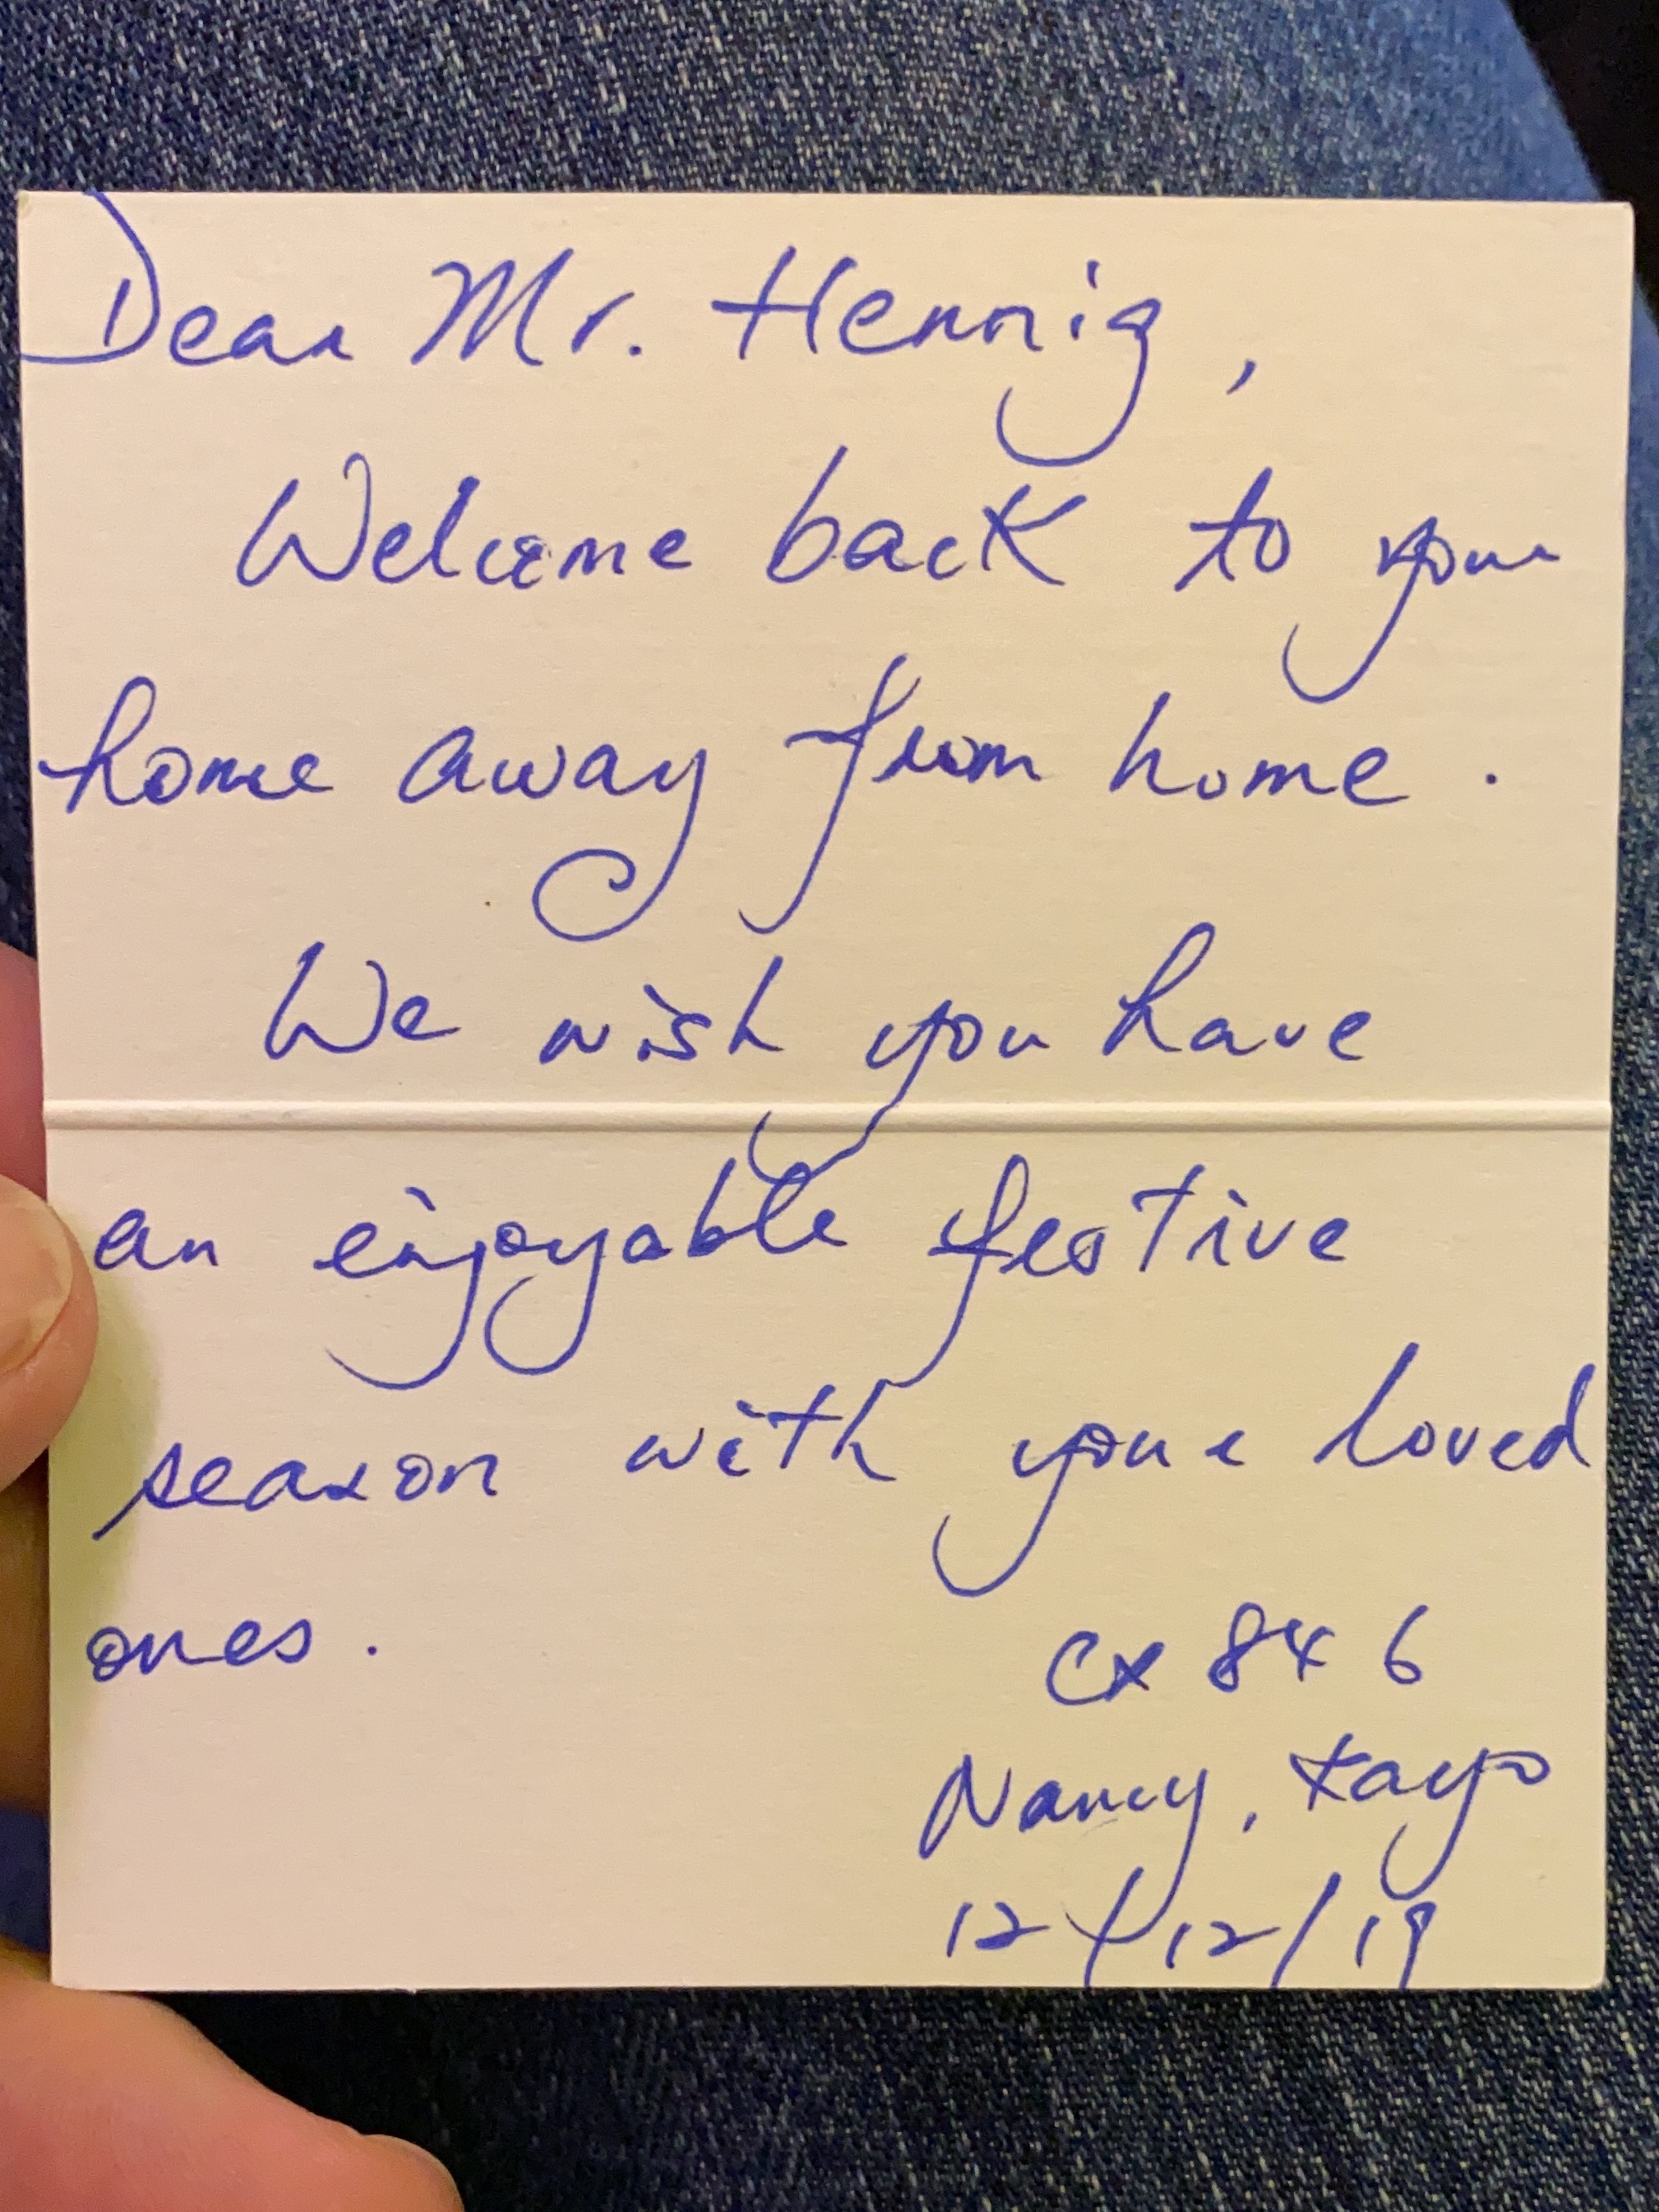 Dear Mr. Hennig,
Welcome back to your
home away from home.
We wish you have
an enjoyable festive
season with your loved
ones.
CX 846
Nancy, Kayo
12/12/19